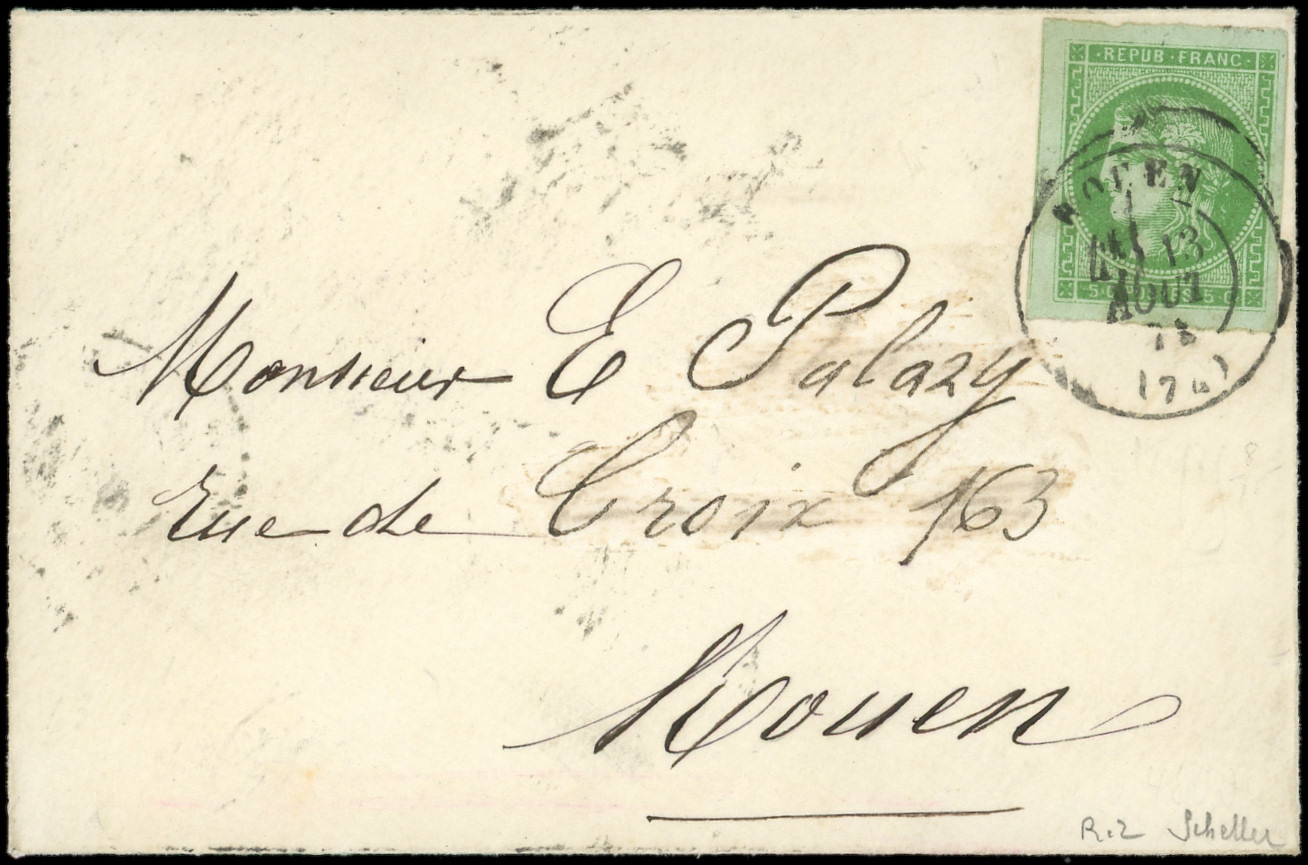 · REPUB · FRANC ·
ROUEN
13
AOUT
5 C 5 C
Monsieur E Palazy
Rue de Croix 163
Rouen
R.2 Scheller